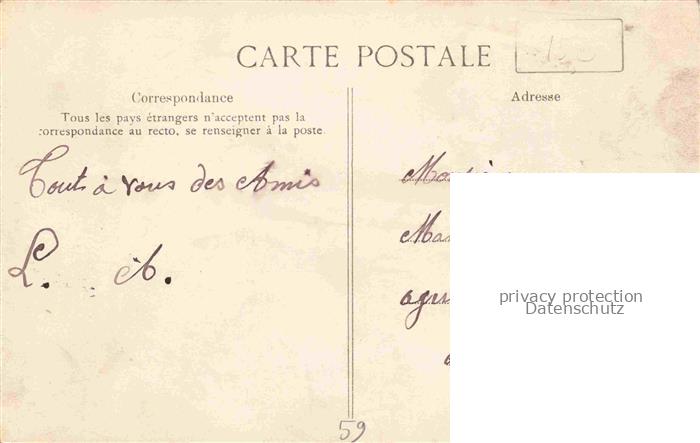 CARTE POSTALE
Correspondance
Tous les pays étrangers n'acceptent pas la
correspondance au recto, se renseigner à la poste.
Touts à vous des Amis
L. A.
Adresse
privacy protection
Datenschutz
59